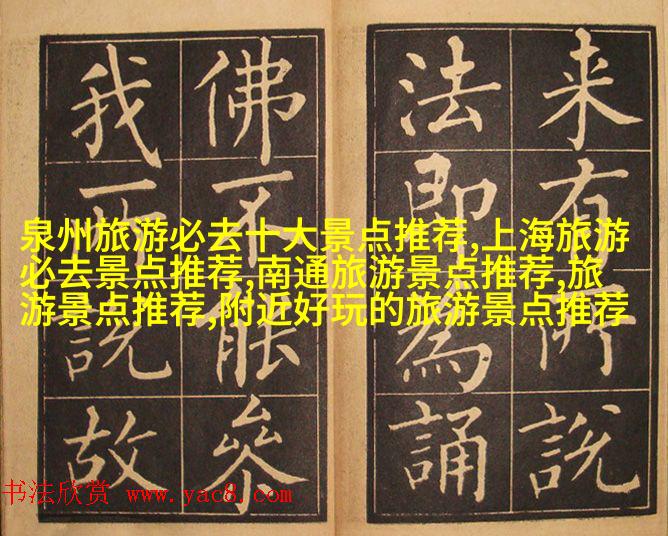 来有所說
法即為誦
佛不能叅
我所說故
泉州旅游必去十大景点推荐,上海旅游
必去景点推荐,南通旅游景点推荐,旅
游景点推荐,附近好玩的旅游景点推荐
书法欣赏 www.yac8.com